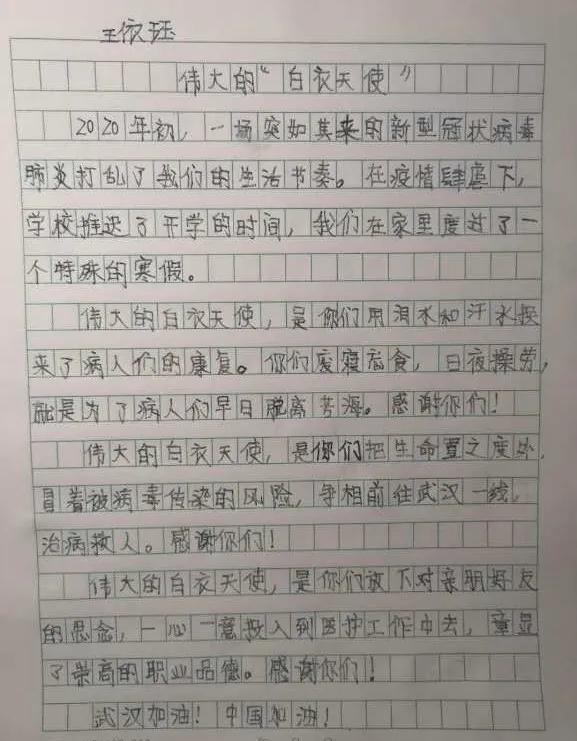 王依珏
伟大的“白衣天使”
2020年初，一场突如其来的新型冠状病毒
肺炎打乱了我们的生活节奏。在疫情肆虐下，
学校推迟了开学的时间，我们在家里度过了一
个特殊的寒假。
伟大的白衣天使，是你们用泪水和汗水换
来了病人们的康复。你们废寝忘食，日夜操劳，
就是为了病人们早日脱离苦海。感谢你们！
伟大的白衣天使，是你们把生命置之度外，
冒着被病毒传染的风险，争相前往武汉一线，
治病救人。感谢你们！
伟大的白衣天使，是你们放下对亲朋好友
的思念，一心一意投入到医护工作中去，彰显
了崇高的职业品德。感谢你们！
武汉加油！中国加油！